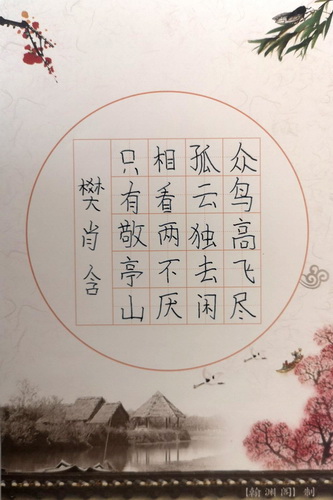 众鸟高飞尽
孤云独去闲
相看两不厌
只有敬亭山
樊肖含
【翰渊阁】制